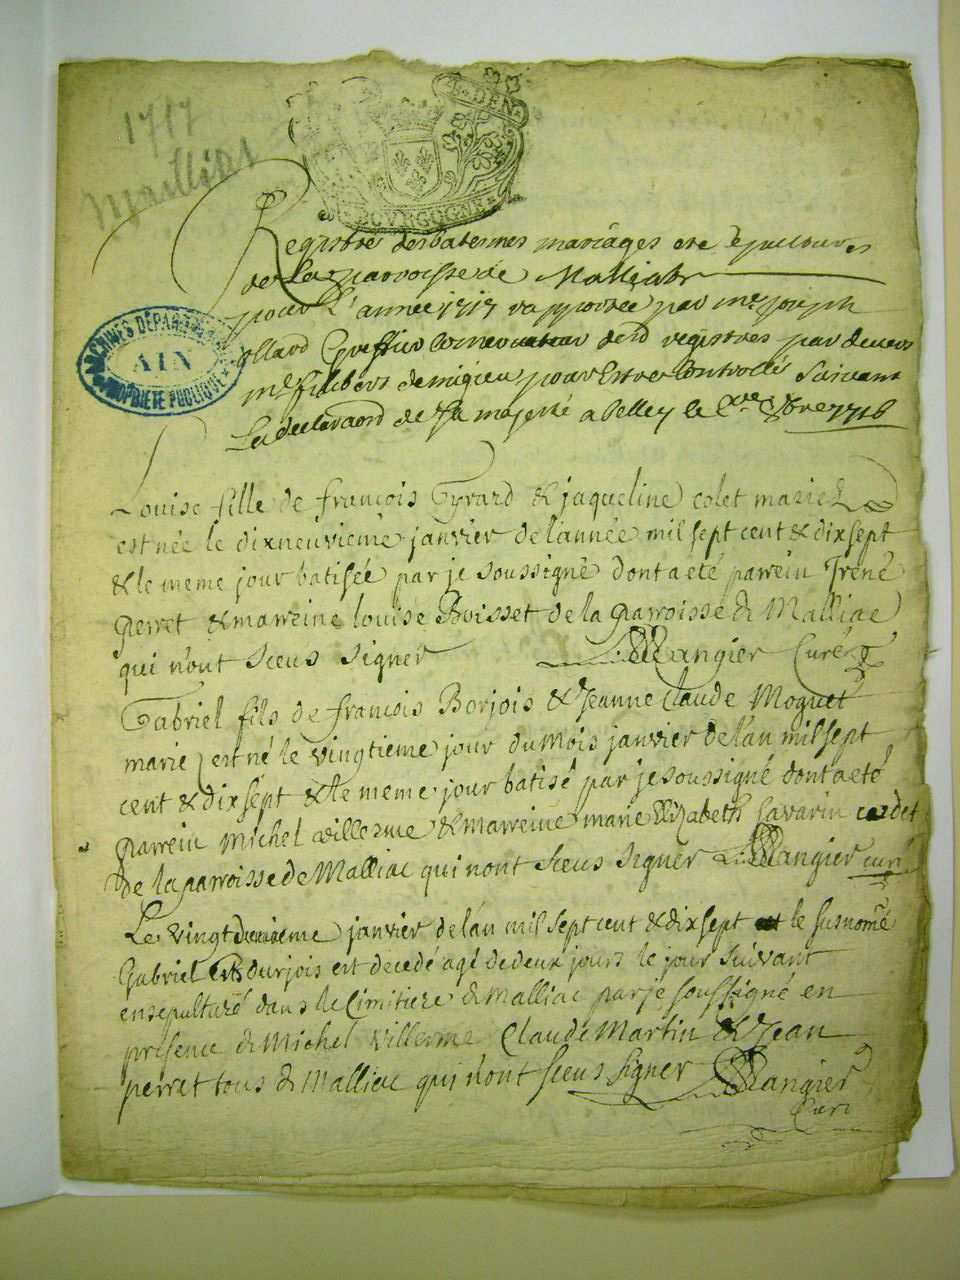 1717
Malliat
G. DEN
BOVRGOGNE
Registre des batesmes mariages et sepultures
de La parroisse de Malliat
pour L'année 1717 rapportée par me Joseph
ollard Greffier conservateur desd registres par devers
me filibert demigieu pour Estre Controllés Suivant
La declaraōn de Sa majesté a belley le Xe Xbre 1716
ARCHIVES DÉPARTEMENTALES
AIN
PROPRIÉTÉ PUBLIQUE
Louise fille de francois Gyrard & jaqueline colet mariez
est née le dixneuvieme janvier de l'année mil sept cent & dix sept
& le meme jour batisée par je soussigné dont a eté parrein Irené
perret & marreine louise Boisset de la parroisse de Malliac
qui n'ont sceus signer Mangier Curé
Gabriel fils de francois Borjois & Jeanne Claude Moguet
mariez est né le vingtieme jour du mois janvier de l'an mil sept
cent & dix sept & le meme jour batisé par je soussigné dont a eté
parrein Michel Villerme & marreine marie Elizabeth Savarin cadet
de la parroisse de Malliac qui n'ont sceus signer Mangier curé
Le vingt deuxieme janvier de l'an mil sept cent & dix sept le susnomé
Gabriel Bourjois est decedé agé de deux jours le jour suivant
ensepulturé dans le Cimitiere de Malliac par je soussigné en
presence de Michel Villerme Claude Martin & Jean
perret tous de Malliac qui n'ont sceus signer Mangier
Curé